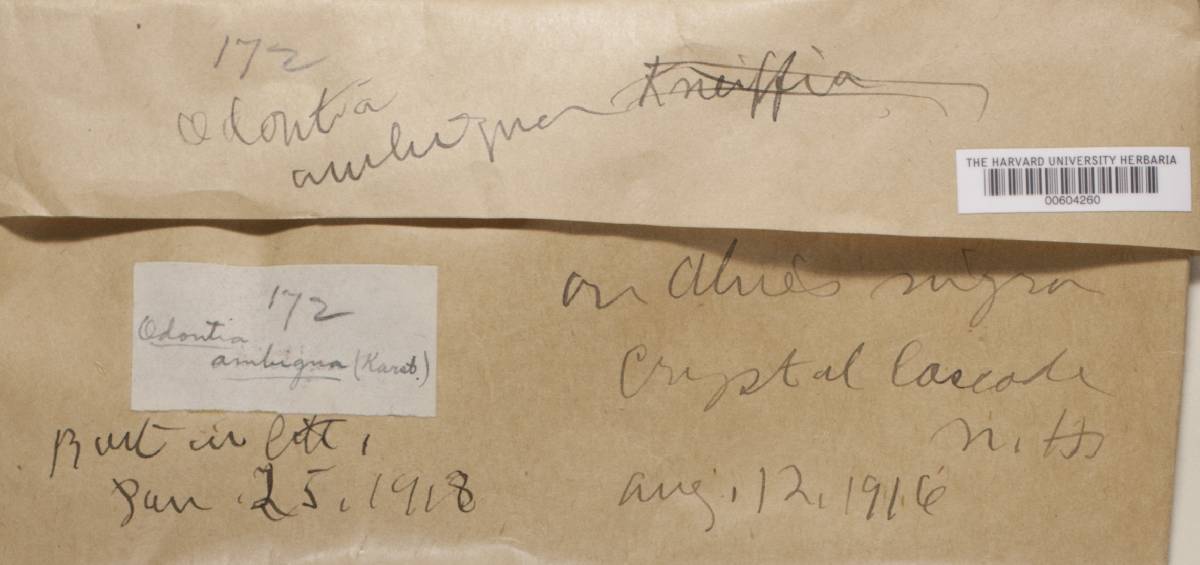 172
Odontia
ambigua Kneiffia
THE HARVARD UNIVERSITY HERBARIA
00604260
172
Odontia
ambigua (Karst.)
Burt in litt.
Jan. 25. 1918
on Abies nigra
Crystal Cascade
N. H.
Aug. 12. 1916